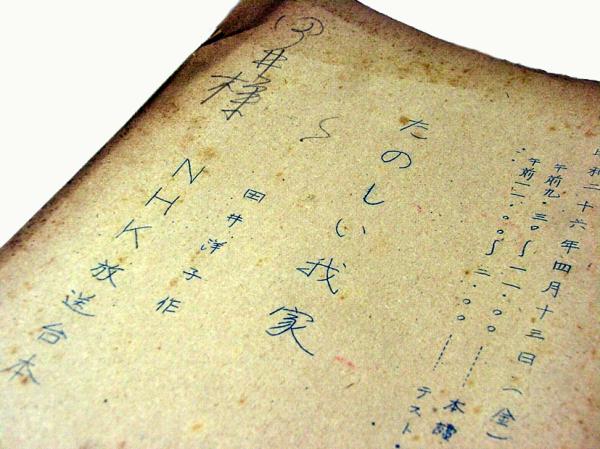 昭和二十六年四月十三日(金)
午前九.三〇〜一一.〇〇……本讀
午前一一.〇〇〜三.〇〇……テスト.
たのしい我家
田井洋子作
NHK放送台本
井様